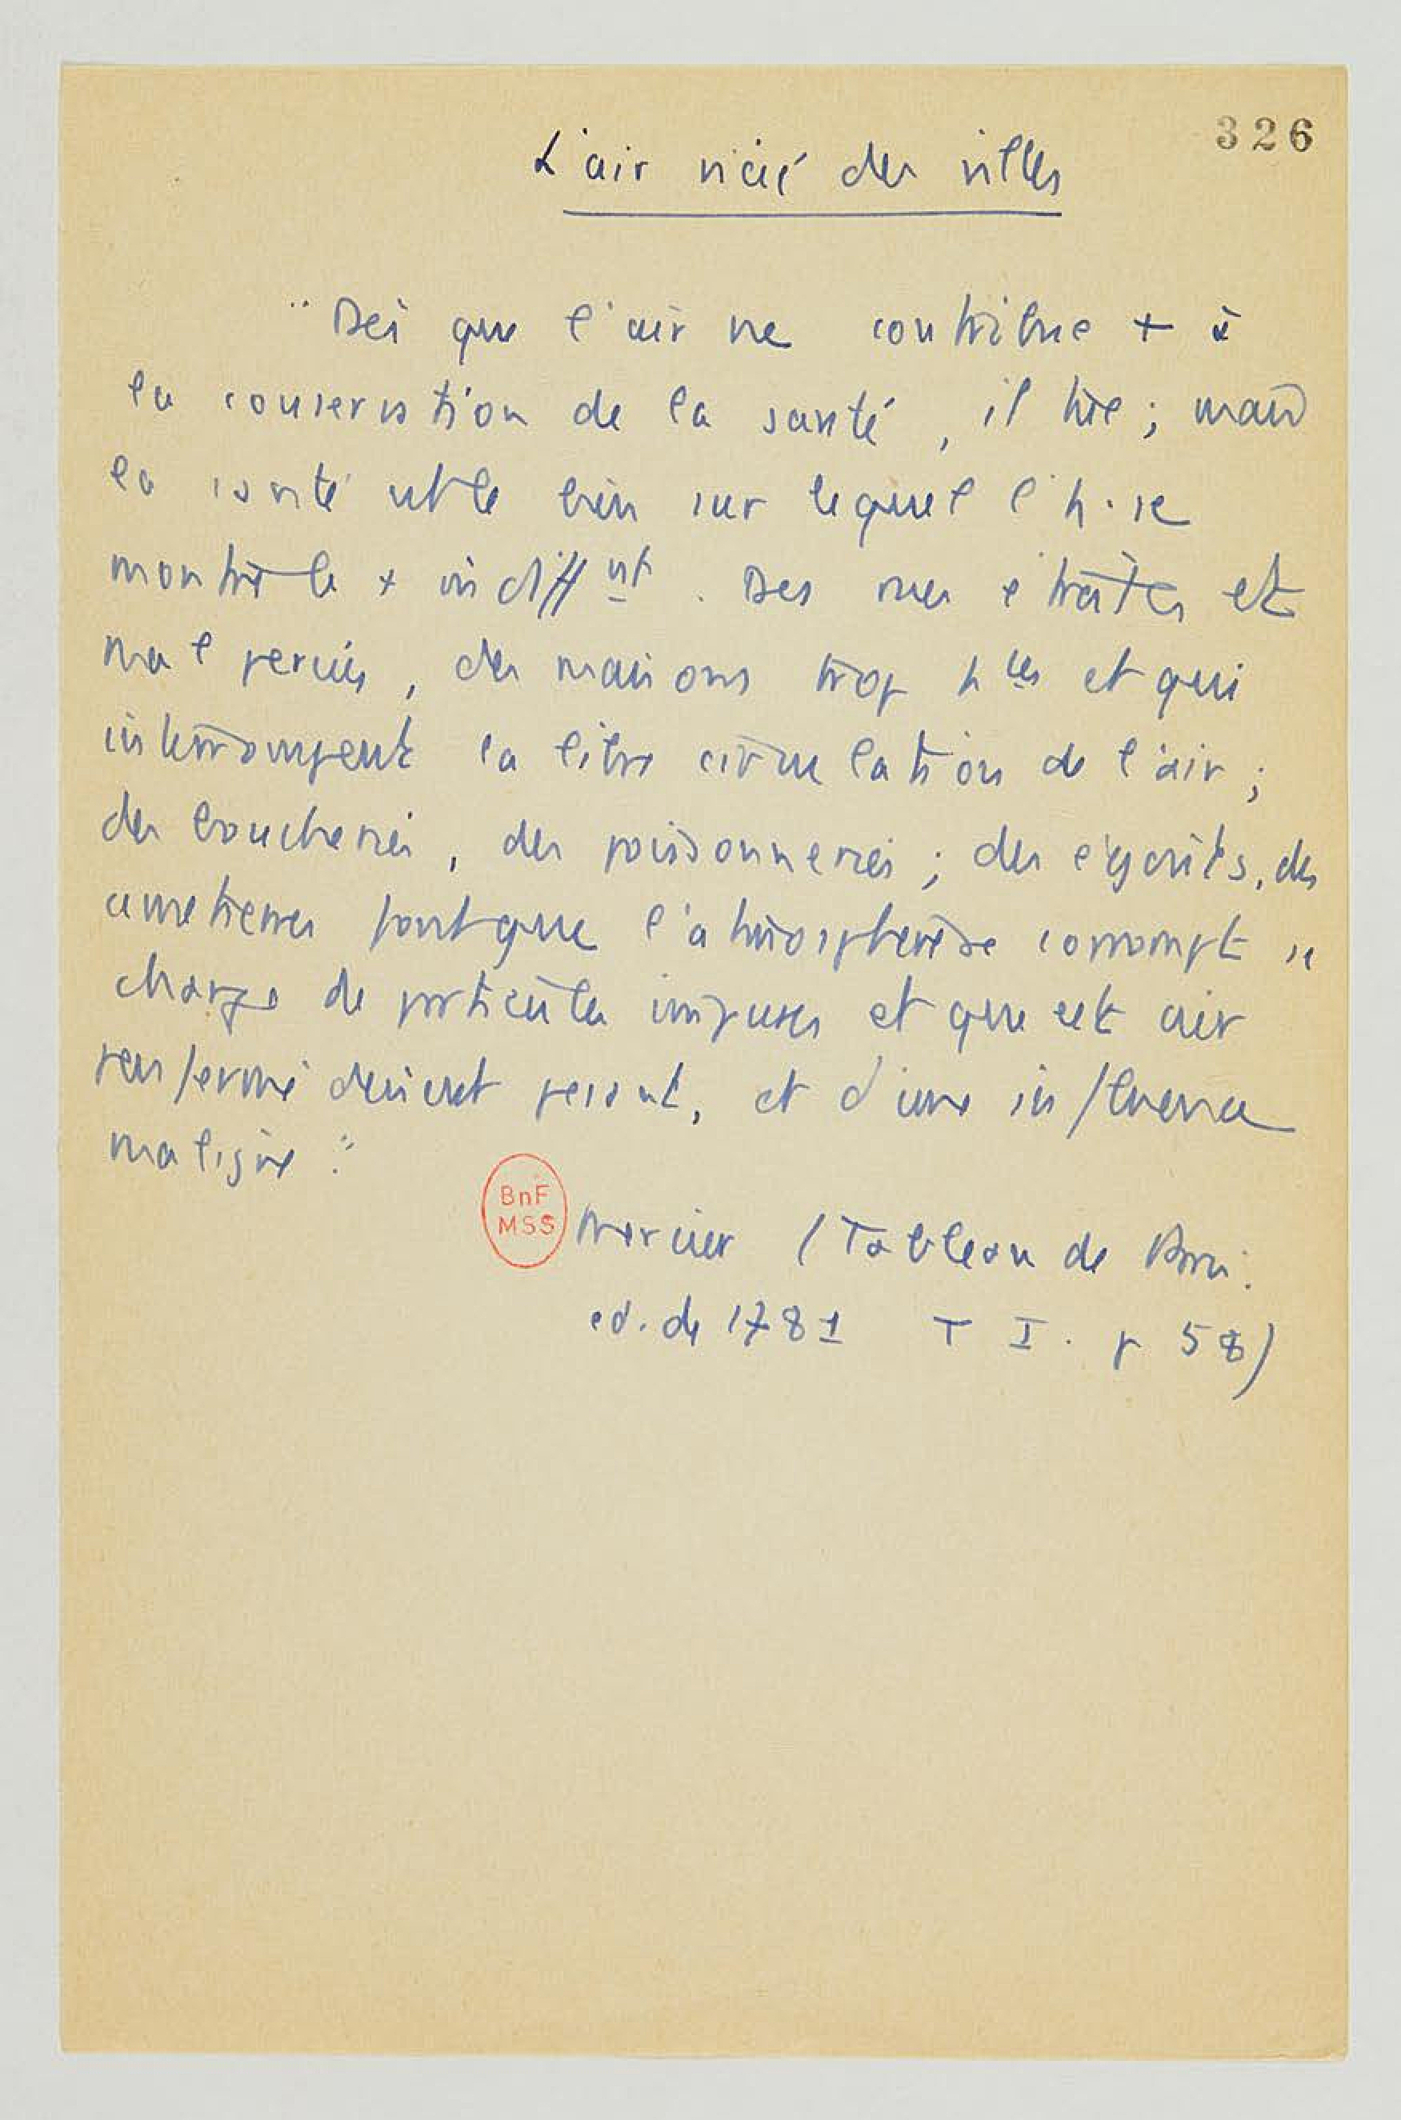 326
L'air vicié des villes
"Dès que l'air ne contribue + à
la conservation de la santé, il tue ; mais
la santé est le bien sur lequel l'h. se
montre le + indiff^nt. Des rues étroites et
mal percées, des maisons trop h^tes et qui
interrompent la libre circulation de l'air ;
des boucheries, des poissonneries ; des égoûts, des
cimetières font que l'atmosphère se corrompt se
charge de particules impures et que cet air
renfermé devient pesant, et d'une influence
maligne."
BnF
MSS
Mercier (Tableau de Paris.
ed. de 1781 T I. p 58)